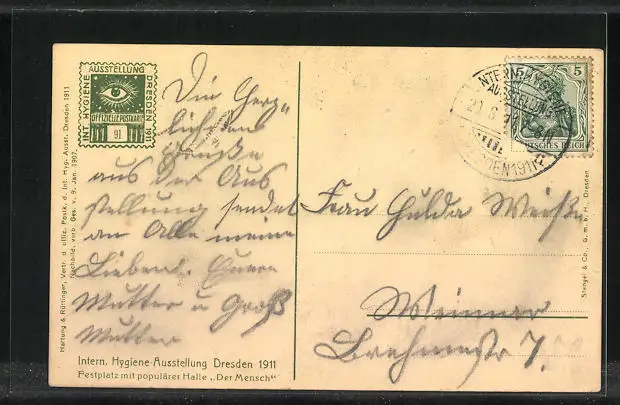 INT. HYGIENE AUSSTELLUNG DRESDEN 1911
OFFIZIELLE POSTKARTE
91
Hartung & Rüttinger, Vertr. d. offiz. Postk. d. Int. Hyg. Ausst. Dresden 1911
Nachbild. verb. Ges. v. 9. Jan. 1907.
Die herz-
lichsten
Grüße
aus der Aus
stellung sendet
an Alle meine
Lieben. Euere
Mutter u Groß
Mutter
Intern. Hygiene-Ausstellung Dresden 1911
Festplatz mit populärer Halle „Der Mensch“
INTERN. HYGIENE
AUSSTELLUNG
DRESDEN 1911
5
DEUTSCHES REICH
Frau Hulda
Weimar
Stengel & Co., G. m. b. H., Dresden